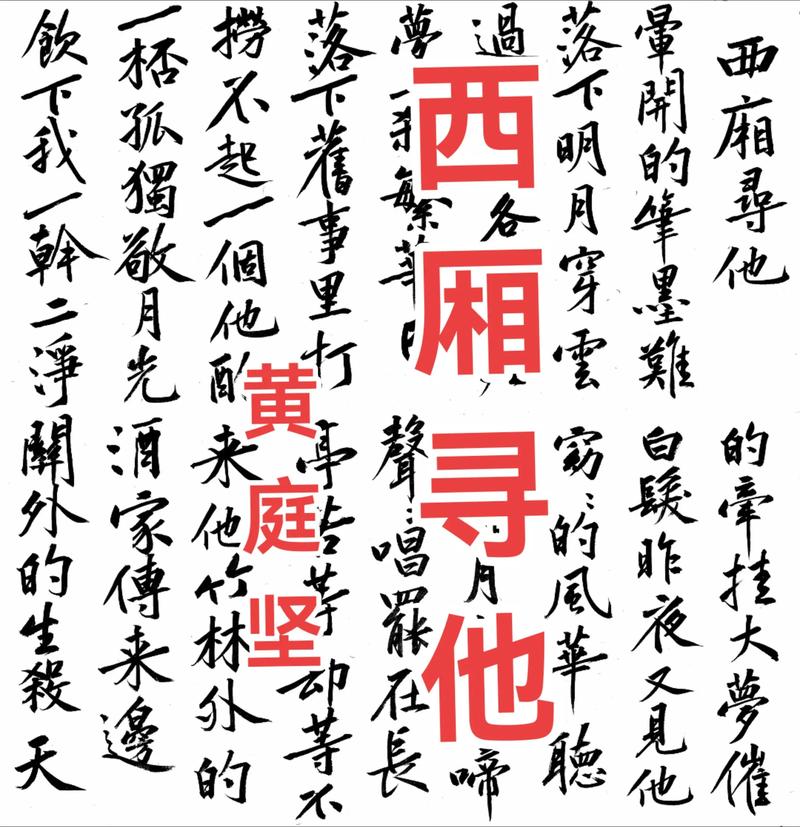 西厢寻他
黄庭坚
西廂尋他
暈開的筆墨難
落下明月穿雲
過各
夢一繁華
落下舊事里打
撈不起一個他
一桮孤獨敬月光
飲下我一幹二淨
的牽挂大夢催
白髮昨夜又見他
窈〻的風華 聽
月啼
聲〻唱罷在長
亭苦等却等不
来他竹林外的
酒家傳来邊
關外的生殺天